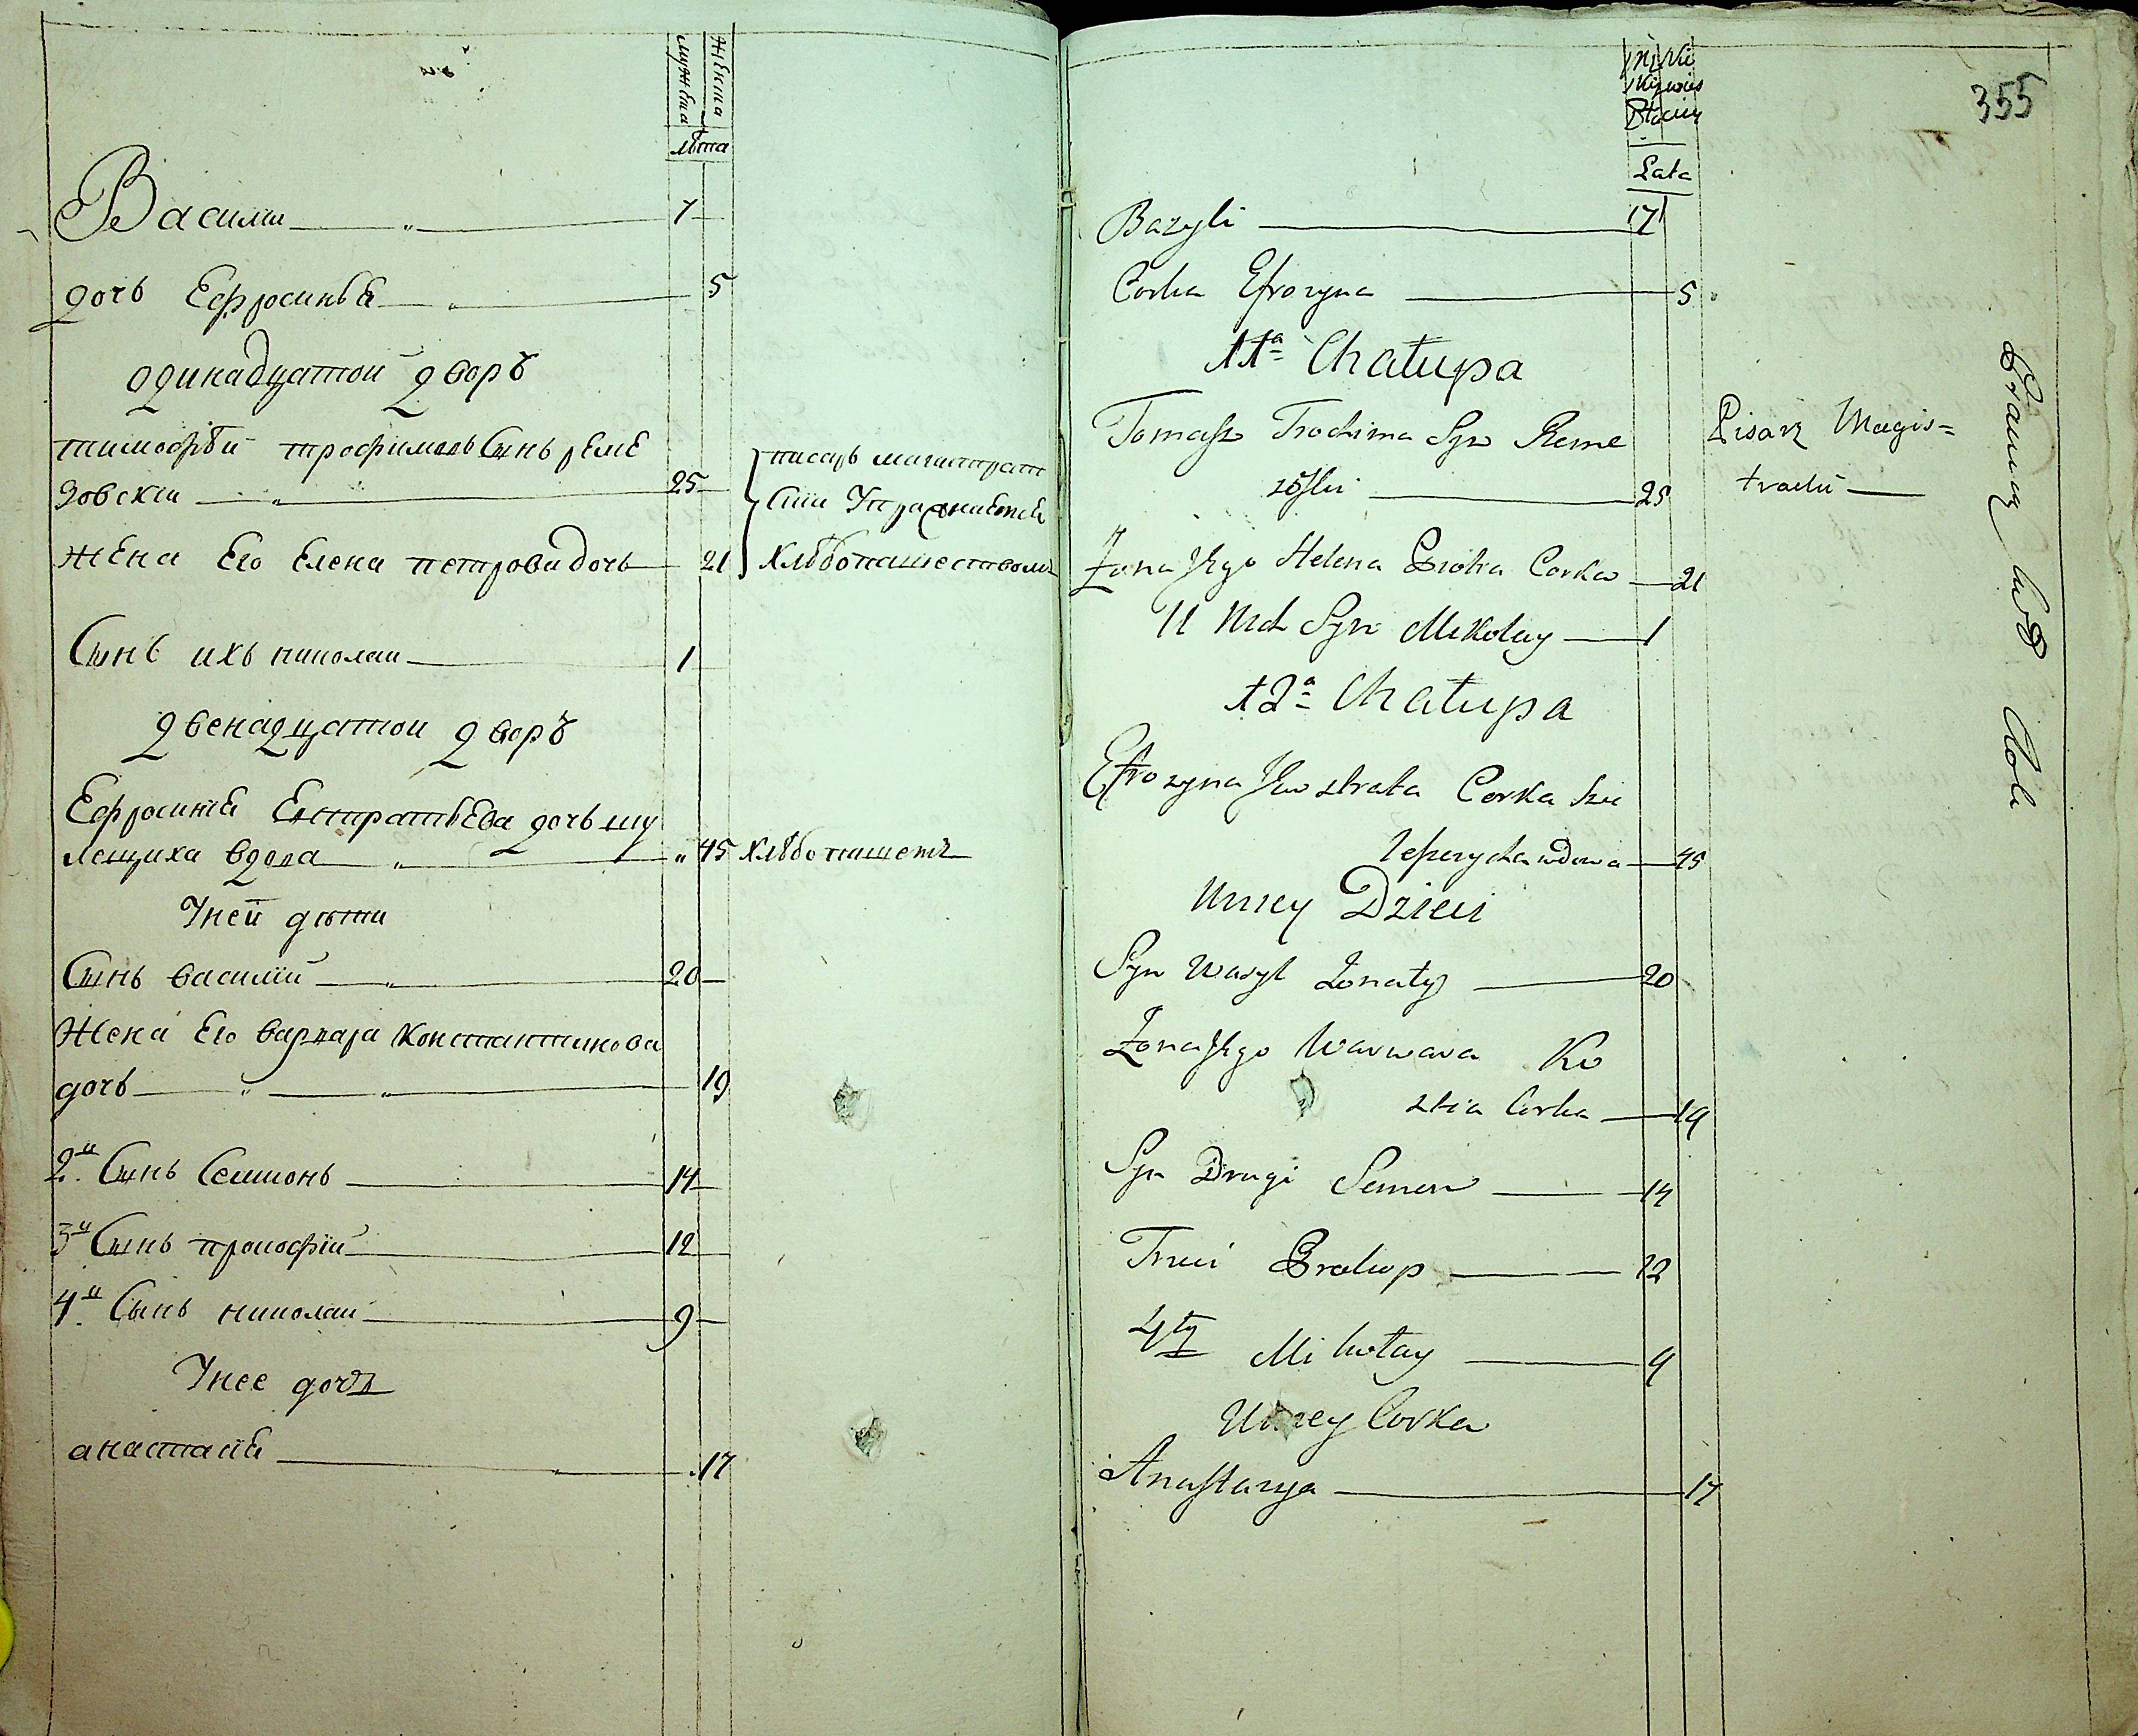 мужеска
женска
лѣта
Василии 7
дочь Ефросинья 5
одинадцатой дворъ
тимофѣй трофимовъ Сынъ реме
зовскии 25
писарь магистрат
жена Его Елена петрова дочь 21
Хлѣбопашествомъ
Сынъ ихъ николаи 1
двенадцатои дворъ
Ефросинья Евстратьева дочь шу
лещиха вдова 45 Хлѣбопашетъ
Унеи дѣти
Сынъ василий 20
Жена Его варвара Константинова
дочь 19
2й Сынъ Семионъ 14
3й Сынъ прокофий 12
4й Сынъ николаи 9
Унее дочь
анастасия 17
355
Lata
Bazyli 7
Corka Efrozyna 5
11a Chałupa
Tomasz Trochima Syn Reme
zoski 25
Pisarz Magis=
tracki
Zona Jego Helena Piotra Corka 21
U nich Syn Mikolay 1
12a Chałupa
Efrozyna Jewstrata Corka Szu
wdowa 45
Uniey Dzieci
Syn Wasyl Zonaty 20
Zona Jego Warwara Ko
Corka 19
Syn Drugi Semen 14
Trzeci Prokop 12
4ty Mikołay 9
Uniey Corka
Anastazya 17